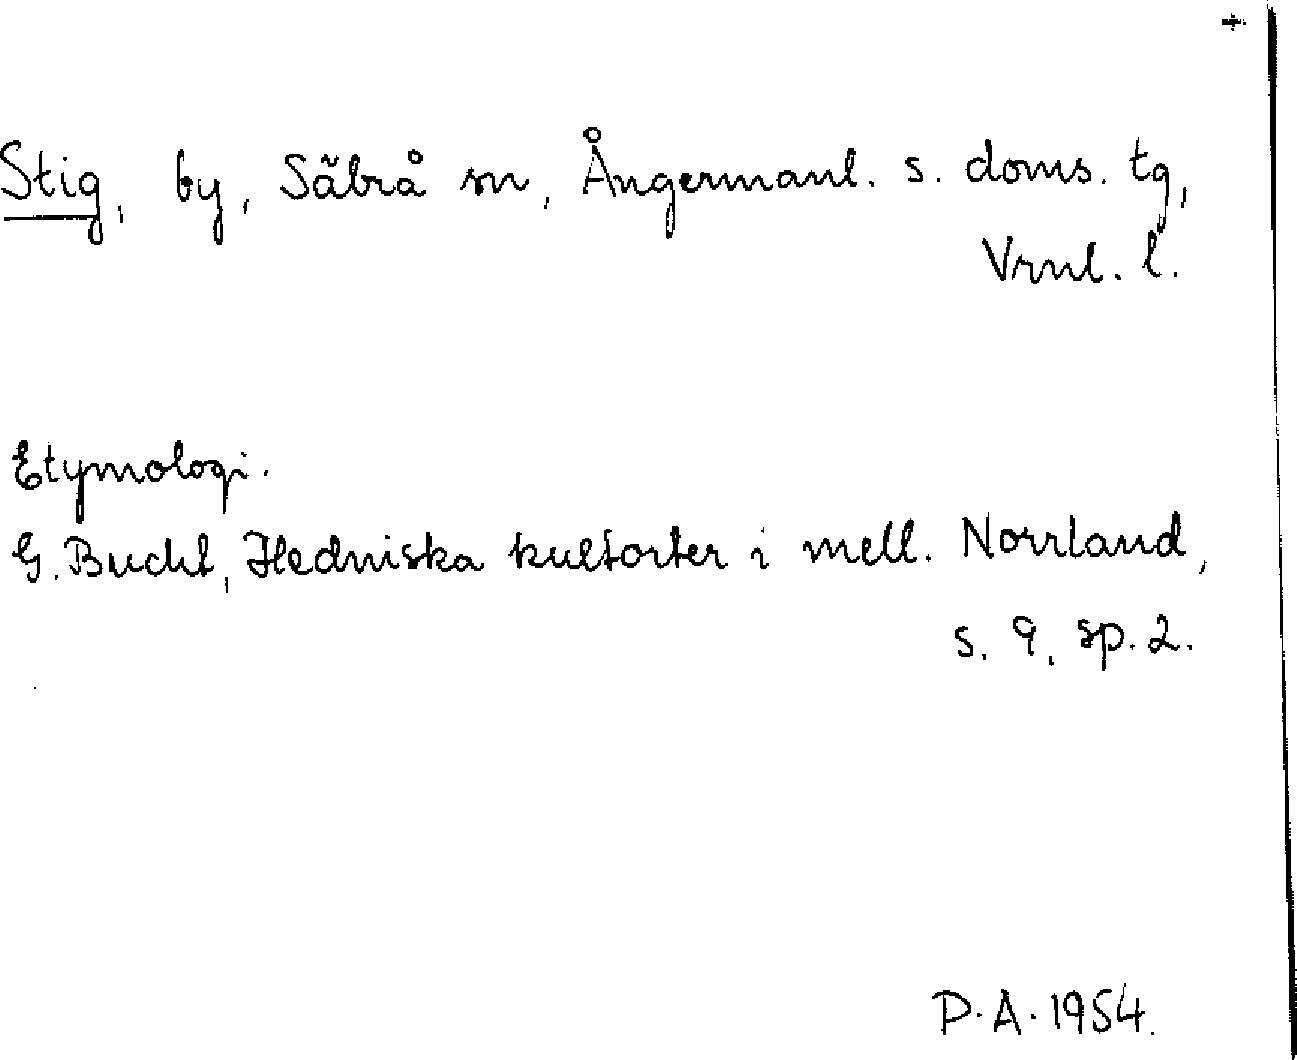 +
Stig, by, Säbrå sn, Ångermanl. s. doms. tg,
Vrnl. l.
Etymologi.
G. Bucht, Hedniska kultorter i mell. Norrland,
s. 9, sp. 2.
P.A. 1954.